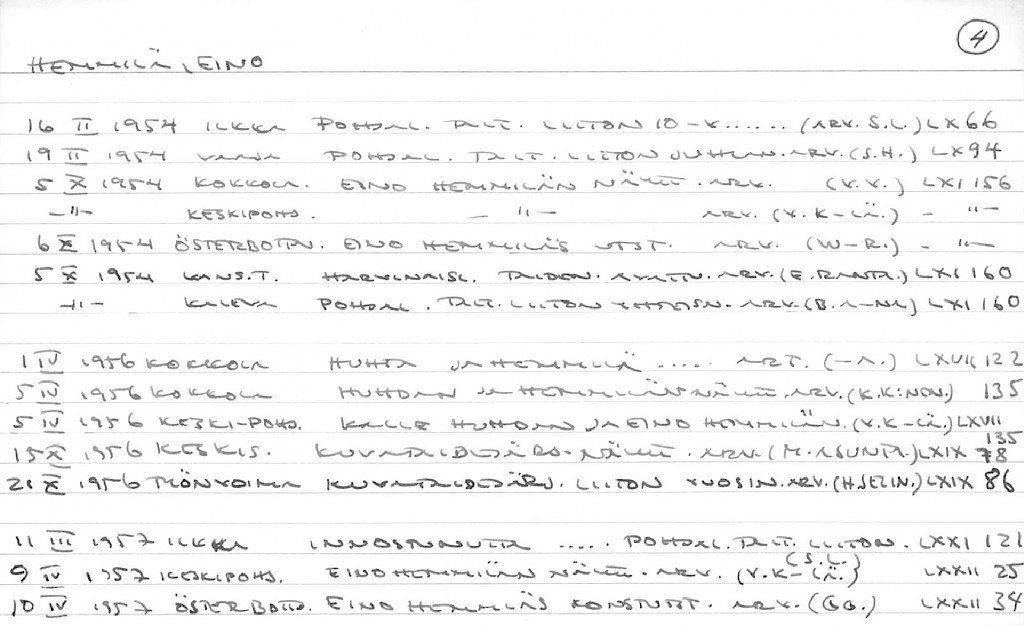 4
HEMMILÄ, EINO
16 II 1954 ILKKA POHJAL. TAIT. LIITON 10-V...... (ARV. S.L.) LX 66
19 II 1954 VAASA POHJAL. TAIT. LIITON JUHLAN. ARV. (S.H.) LX 94
5 X 1954 KOKKOLA. EINO HEMMILÄN NÄYTT. ARV. (V.V.) LXI 156
—"— KESKIPOHJ. —"— ARV. (V. K-LÄ.) - "—
6 X 1954 ÖSTERBOTTN. EINO HEMMILÄS UTST. ARV. (W-R.) - "—
5 X 1954 KANS.T. HARVINAISL. TAIDEN. AVATTU. ARV. (E. RANTA.) LXI 160
—"— KALEVA POHJAL. TAIT. LIITON YHTEISN. ARV. (B. L-NA) LXI 160
1 IV 1956 KOKKOLA HUHTA JA HEMMILÄ ..... ART. (-A.) LXVII 122
5 IV 1956 KOKKOLA HUHDAN JA HEMMILÄN NÄYTT. ARV. (K.K:NON.) 135
5 IV 1956 KESKI-POHJ. KALLE HUHDAN JA EINO HEMMILÄN. " (V.K-LÄ.) LXVII 135
15 X 1956 KESKIS. KUVATAIDEJÄRJ. NÄYTT. ARV. (M. ASUNTA.) LXIX 78
21 X 1956 TYÖNVOIMA KUVATAIDEJÄRJ. LIITON VUOSIN. ARV. (HJELIN.) LXIX 86
11 III 1957 ILKKA INNOSTUNUTTA ..... POHJAL. TAIT. LIITON. LXXI 121
9 IV 1957 KESKIPOHJ. EINO HEMMILÄN NÄYTT. ARV. (V.K-LÄ.) (S.L.) LXXII 25
10 IV 1957 ÖSTERBOTTN. EINO HEMMILÄS KONSTUTST. ARV. (GG.) LXXII 34